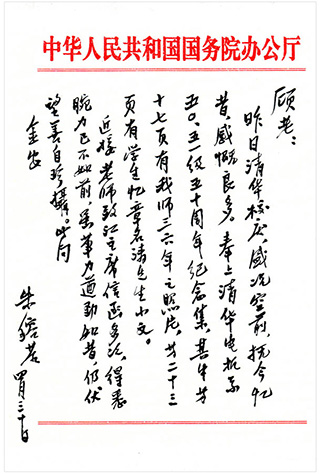 中华人民共和国国务院办公厅
顾老:
昨日清华校庆,盛况空前,抚今忆
昔,感慨良多。奉上清华电机系
五〇、五一级五十周年纪念集,其中第
十七页有我师三六年之照片,第二十三
页有学生忆章名涛先生小文。
近接老师致江主席信函多次,得悉
腕力已不如前,笔力遒劲如昔,仍伏
望善自珍摄。此问
金安
朱镕基
四月三十日